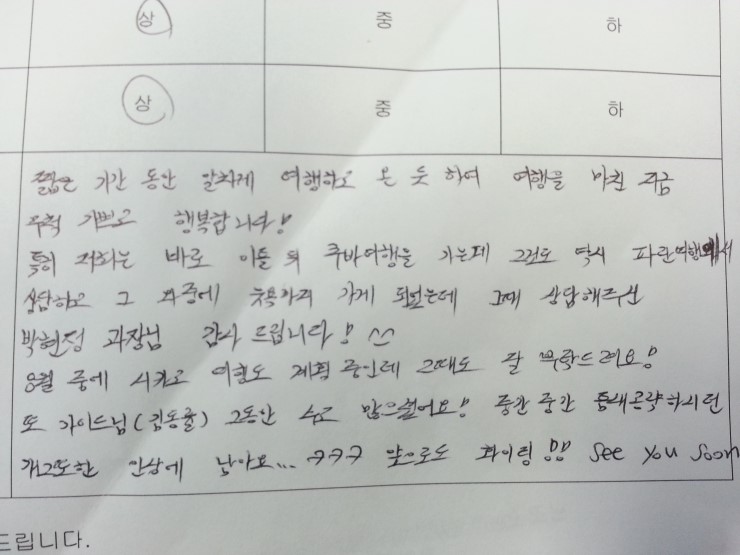 상 중 하
상 중 하
짧은 기간 동안 알차게 여행하고 온 듯 하여 여행을 마친 지금
무척 기쁘고 행복합니다!
특히 저희는 바로 이틀 뒤 쿠바여행을 가는데 그것도 역시 파란여행에서
상담하고 그 와중에 가게 되었는데 그때 상담해주신
박현정 과장님 감사 드립니다! ^^
8월 중에 시카고 여행도 계획 중인데 그때도 잘 부탁드려요!
또 가이드님(김동율) 그동안 수고 많으셨어요! 중간중간 틈새공략하시던
개그또한 인상에 남아요... ㅋㅋㅋ 앞으로도 화이팅!! See you soon
드립니다.